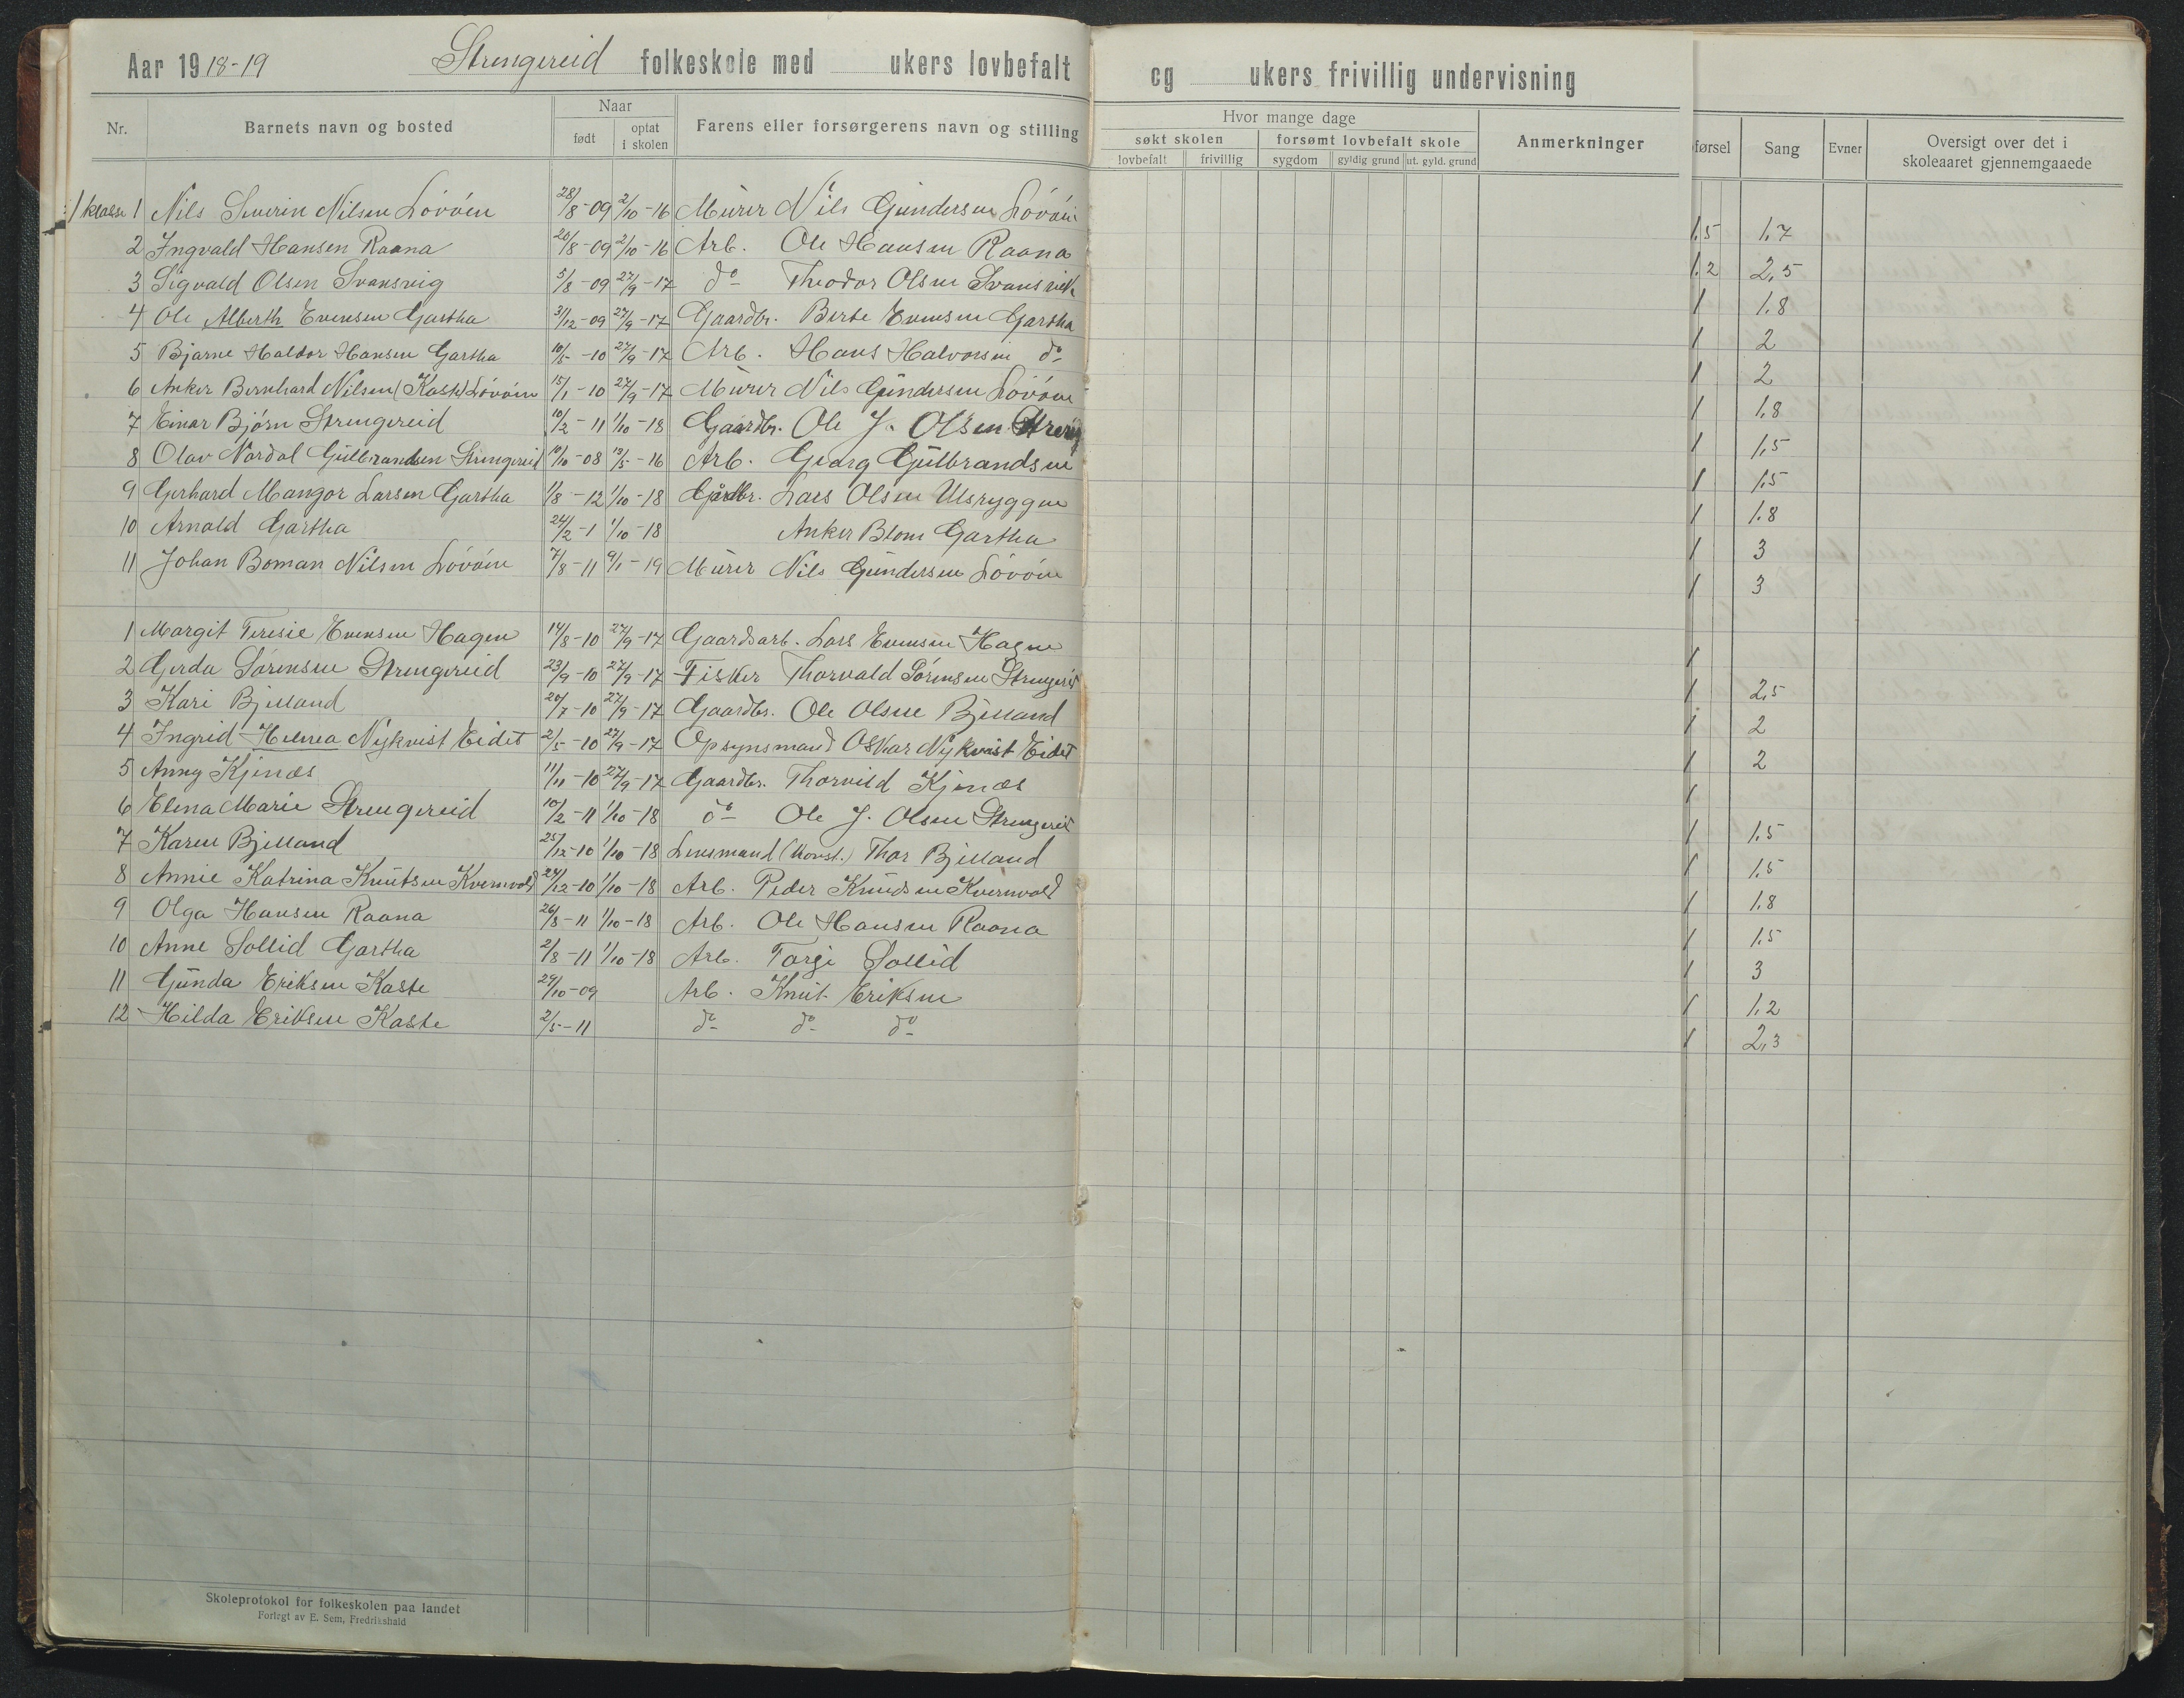 Aar 1918-19 Strengereid folkeskole med ukers lovbefalt og ukers frivillig undervisning
Nr. Barnets navn og bosted Naar født optat i skolen Farens eller forsørgerens navn og stilling
Hvor mange dage
søkt skolen forsømt lovbefalt skole Anmerkninger
lovbefalt frivillig sygdom gyldig grund ut. gyld. grund
førsel Sang Evner Oversigt over det i skoleaaret gjennemgaaede
1 klasse 1 Nils Severin Nilsen Lövöen 28/8-09 2/10-16 Murer Nils Gundersen Lövöen
2 Ingvald Hansen Raana 26/8-09 2/10-16 Arb. Ole Hansen Raana 1,5 1,7
3 Sigvald Olsen Svansvig 5/8-09 27/9-17 do Theodor Olsen Svansvik 1,2 2,5
4 Ole Alberth Evensen Gartha 31/12-09 27/9-17 Gaardbr. Berte Evensen Gartha 1 1.8
5 Bjarne Haldor Hansen Gartha 10/5-10 27/9-17 Arb. Hans Halvorsen do 1 2
6 Anker Bernhard Nilsen (Kaste) Lövöen 15/1-10 27/9-17 Murer Nils Gundersen Lövöen 1 2
7 Einar Bjørn Strengereid 10/2-11 1/10-18 Gaardbr. Ole J. Olsen Streng 1 1.8
8 Olav Nordal Gulbrandsen Strengereid 10/10-08 /5-16 Arb. Georg Gulbrandsen 1 1,5
9 Gerhard Mangor Larsen Gartha 1/8-12 1/10-18 Gårdbr. Lars Olsen Ulsryggen 1 1.5
10 Arnold Gartha 24/2-1 1/10-18 Anker Blom Gartha 1 1.8
11 Johan Boman Nilsen Lövöen 7/8-11 9/1-19 Murer Nils Gundersen Lövöen 1 3
1 3
1 Margit Teresie Evensen Hagen 14/8-10 27/9-17 Gaardsarb. Lars Evensen Hagen
2 Gerda Sørensen Strengereid 23/9-10 27/9-17 Fisker Thorvald Sörensen Strengereid 1
3 Kari Bjelland 20/7-10 27/9-17 Gaardbr. Ole Olsen Bjelland 1 2,5
4 Ingrid Helena Nykvist Eidet 2/5-10 27/9-17 Opsynsmand Oskar Nykvist Eidet 1 2
5 Anny Kjenæs 11/11-10 27/9-17 Gaardbr. Thorvild Kjenæs 1 2
6 Elena Marie Strengereid 10/2-11 1/10-18 do Ole J. Olsen Strengereid 1
7 Karen Bjelland 25/12-10 1/10-18 Lensmand (konst.) Thor Bjelland 1 1.5
8 Annie Katrina Knutsen Kvernvold 24/12-10 1/10-18 Arb. Peder Knudsen Kvernvold 1 1.5
9 Olga Hansen Raana 26/8-11 1/10-18 Arb. Ole Hansen Raana 1 1.8
10 Anne Sollid Gartha 2/8-11 1/10-18 Arb. Torje Sollid 1 1.5
11 Gunda Eriksen Kaste 29/10-09 Arb. Knut Eriksen 1 3
12 Hilda Eriksen Kaste 2/5-11 do do do 1 1,2
1 2,3
Skoleprotokol for folkeskolen paa landet
Forlagt av E. Sem, Fredrikshald